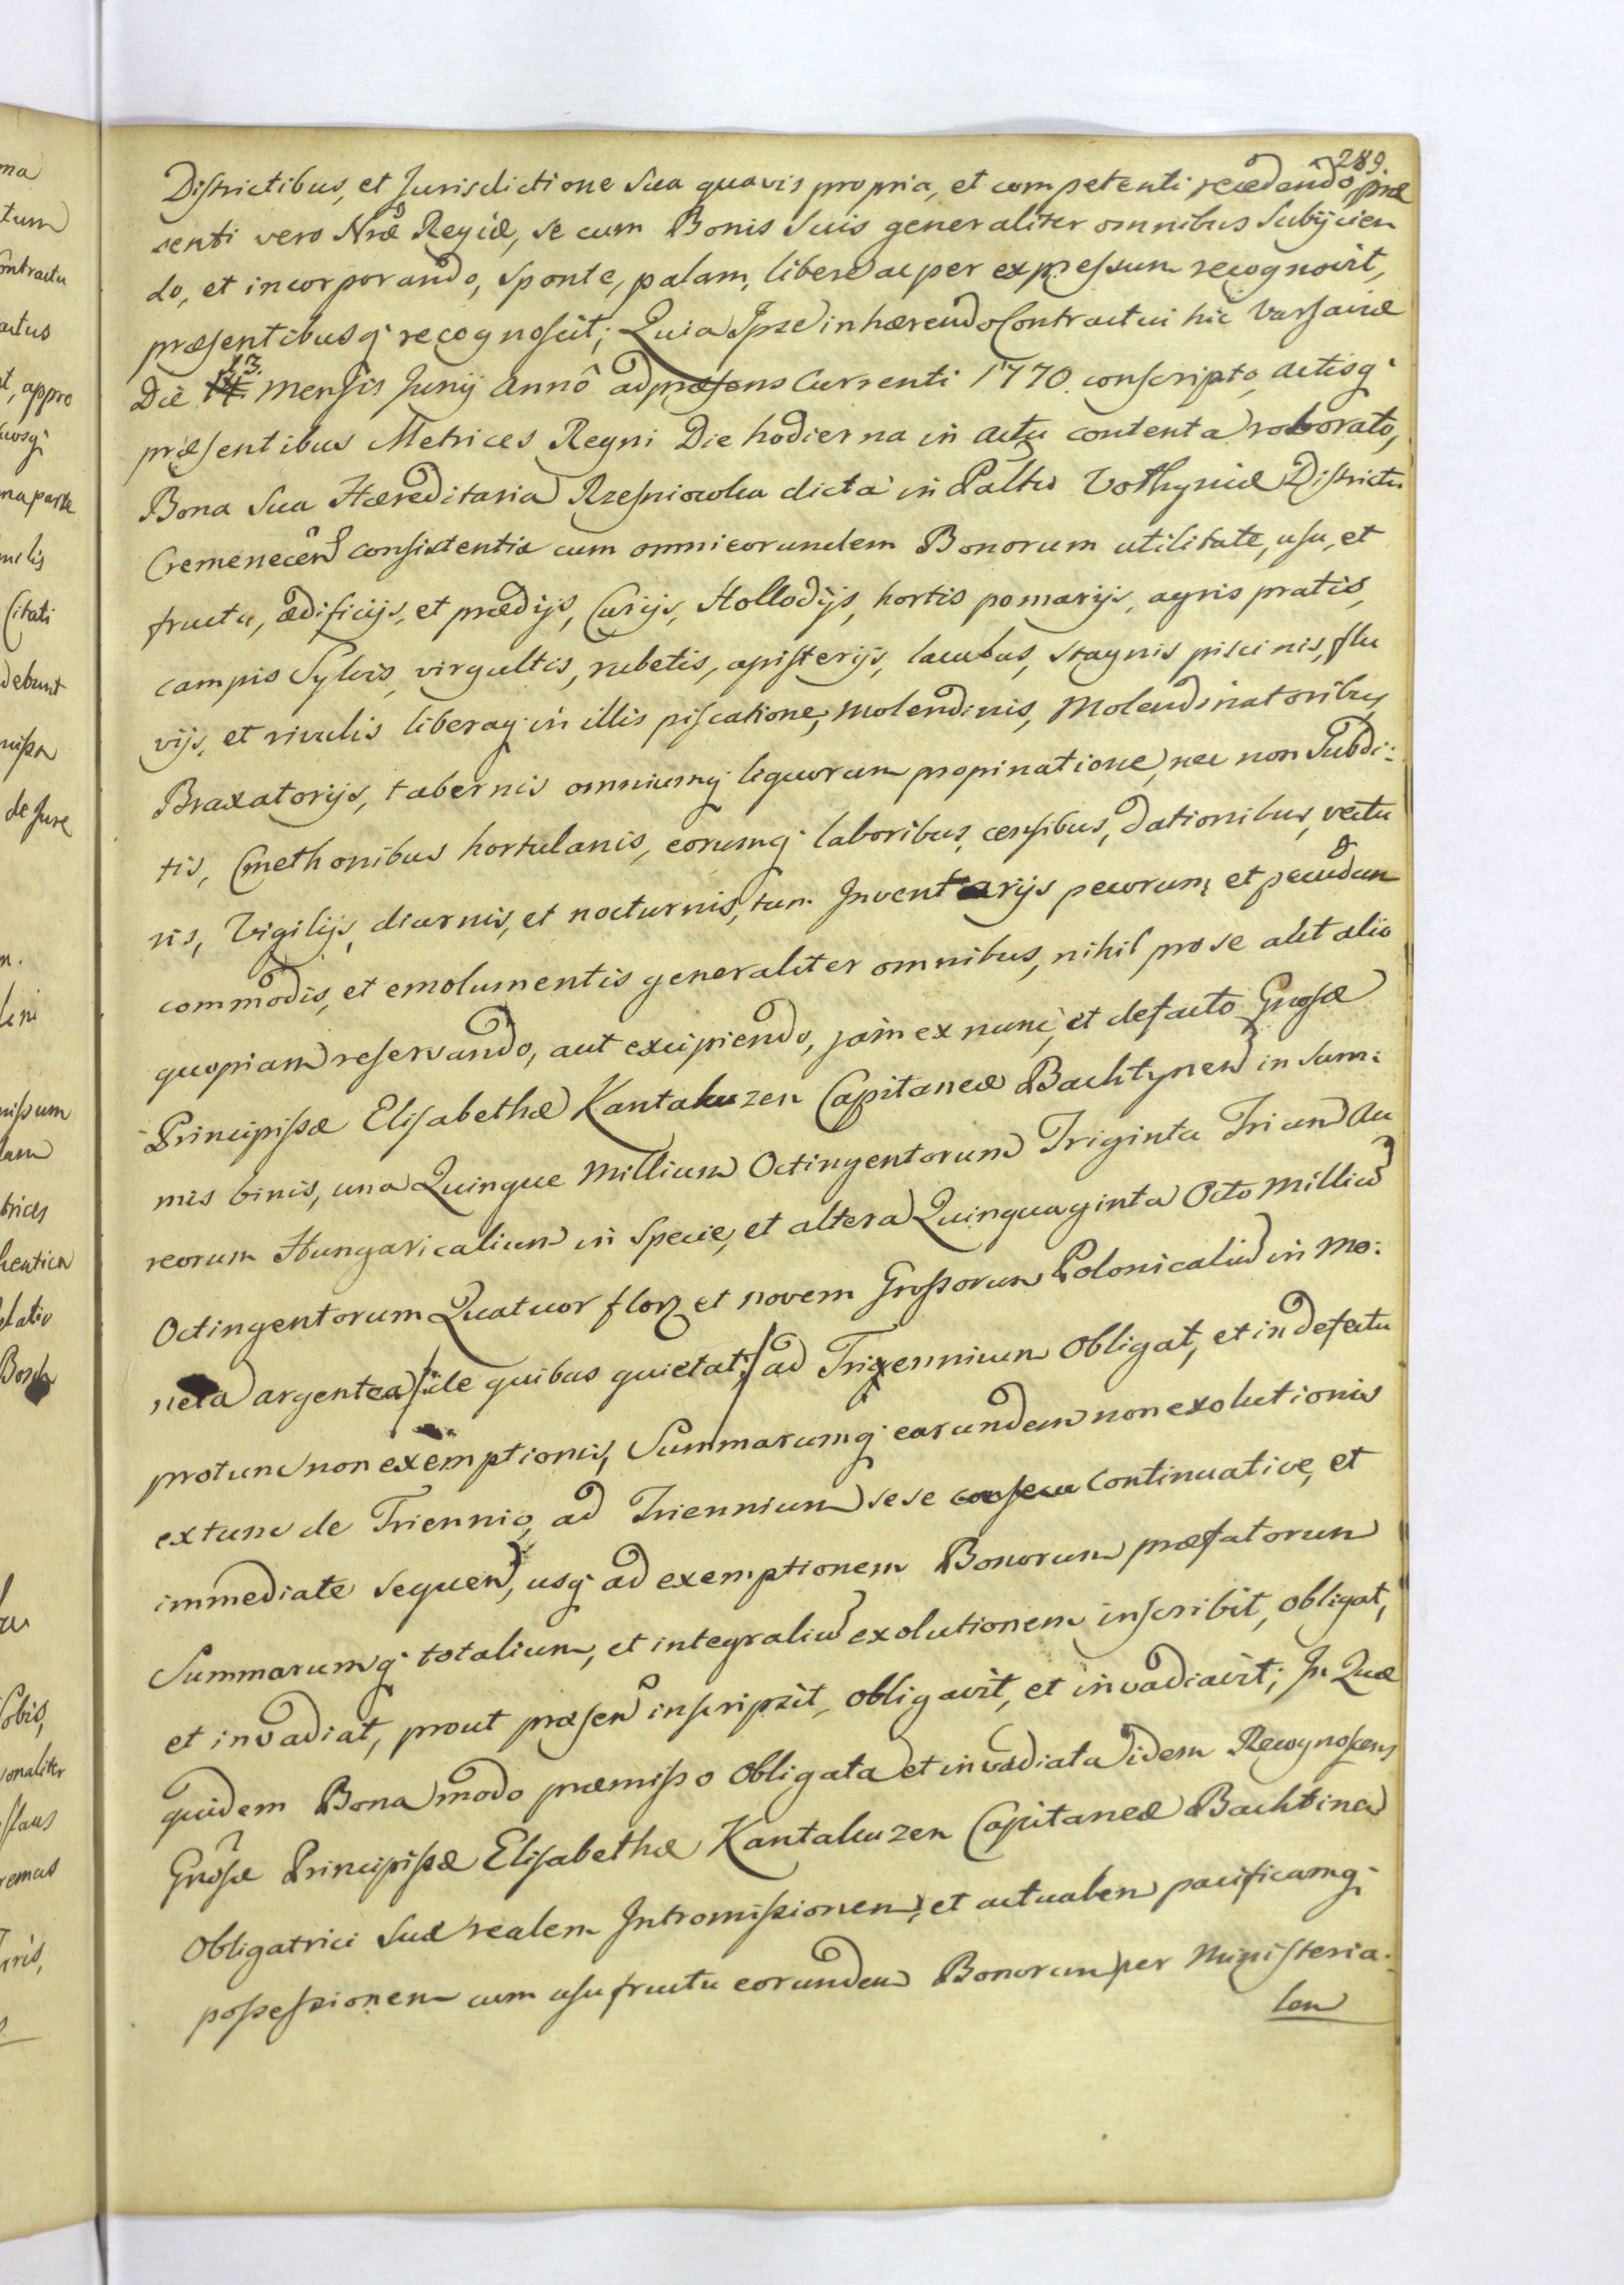 289.
Districtibus, et Jurisdictione sua quavis propria, et competenti recedendo, præ
senti vero Nræ Regiæ, se cum Bonis suis generaliter omnibus subijcien
do, et incorporando, sponte, palam, libere ac per expressum recognovit,
præsentibusq; recognoscit; Quia Ipse inhærendo Contractui hic Varsaviæ
Die 13. mensis Junij Annô ad præsens Currenti 1770. conscripto, actisq;
præsentibus Metrices Regni Die hodierna in actu contenta roborato,
Bona sua Hæreditaria Rzesniowka dicta in Palttu Volhyniæ Districtu
Cremenecen consistentia cum omni eorundem Bonorum utilitate, usu, et
fructu, ædificijs, et prædijs, Curijs, Hollodijs, hortis pomarijs, agris pratis,
campis Sylvis, virgultis, rubetis, apisterijs, lacubus, stagnis piscinis, flu
vijs, et rivulis liberaq; in illis piscatione, Molendinis, Molendinatoribus,
Braxatorijs, tabernis omniumq; liquorum propinatione, nec non Subdi:
tis, Cmethonibus hortulanis, eorumq; laboribus, censibus, dationibus, vectu
ris, Vigilijs, diurnis, et nocturnis, tum Inventarijs pecorum, et pecudum
commodis, et emolumentis generaliter omnibus, nihil pro se aut alio
quopiam reservando, aut excipiendo, jam ex nunc, et defacto Gnosæ
Principissæ Elisabethæ Kantakuzen Capitaneæ Bachtynen in sum:
mis binis, una Quinque Millium Octingentorum Triginta Trium Au
reorum Hungaricalium in Specie, et altera Quinquaginta Octo Milliu
Octingentorum Quatuor flor et novem Grossorum Polonicaliu in Mo:
neta argentea /:de quibus quietat:/ ad Triennium Obligat, et in defectu
protunc non exemptionis, Summarumq; earundem non exolutionis
extunc de Triennio, ad Triennium sese continuative, et
immediate sequen, usq; ad exemptionem Bonorum præfatorum
Summarumq; totalium, et integraliu exolutionem inscribit, obligat,
et invadiat, prout præsen inscripsit, obligavit, et invadiavit; In Quæ
quidem Bona modo præmisso Obligata et invadiata idem Recognoscens
Gnosæ Principissæ Elisabethæ Kantakuzen Capitaneæ Bachtinen
Obligatrici suæ realem Intromissionem, et actualem pacificamq;
possessionem cum usufructu eorundem Bonorum per Ministeria:
lem